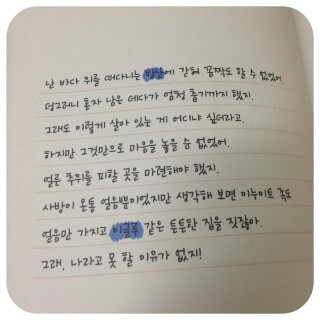 난 바다 위를 떠다니는 빙산에 갇혀 꼼짝도 할 수 없었어.
덩그러니 혼자 남은 데다가 엄청 춥기까지 했지.
그래도 이렇게 살아 있는 게 어디냐 싶더라고.
하지만 그것만으로 마음을 놓을 순 없었어.
얼른 추위를 피할 곳을 마련해야 했지.
사방이 온통 얼음뿐이었지만 생각해 보면 이누이트 족도
얼음만 가지고 이글루 같은 튼튼한 집을 짓잖아.
그래, 나라고 못 할 이유가 없지!